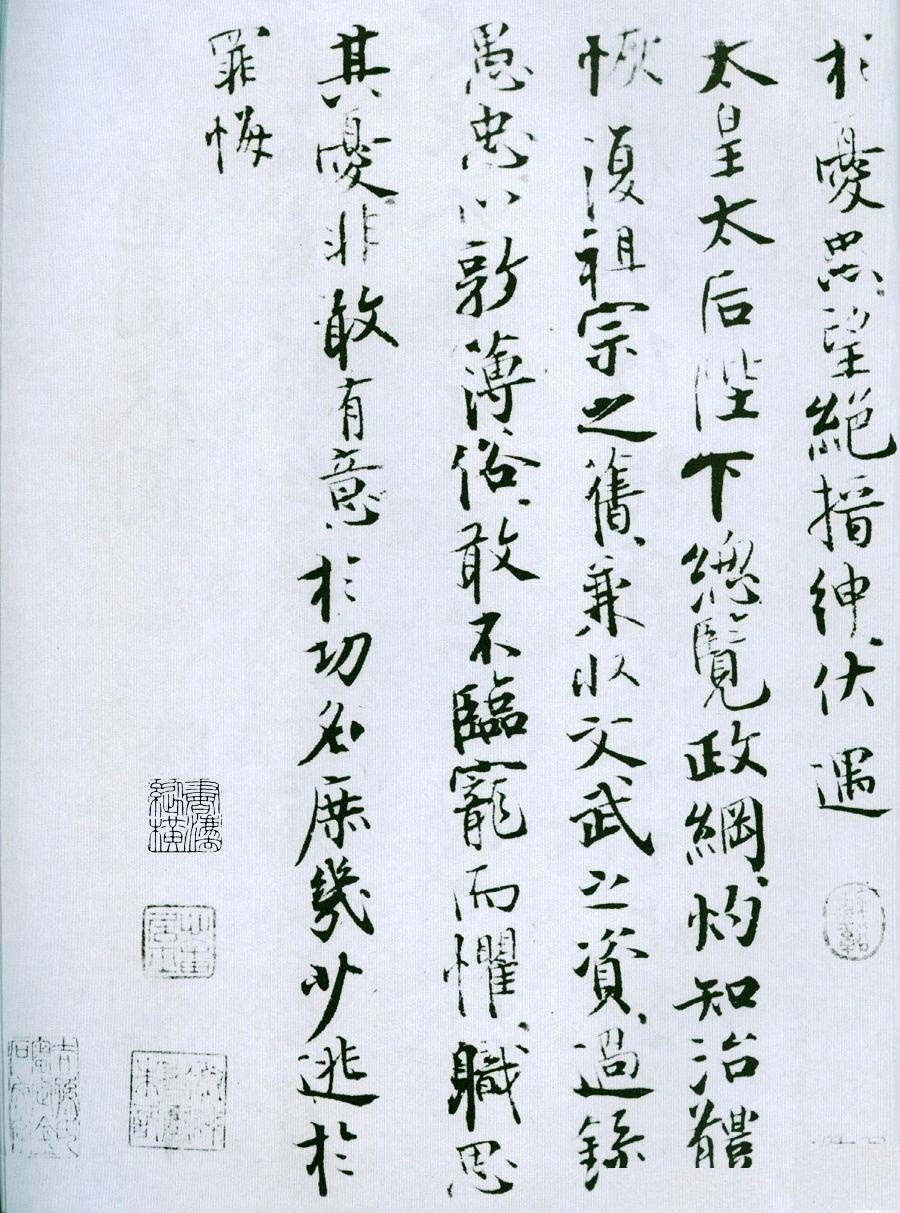 於憂患望絕搢紳伏遇
太皇太后陛下總覽政綱灼知治體
恢復祖宗之舊兼收文武之資過錄
愚忠以敦薄俗敢不臨寵而懼職思
其憂非敢有意於功名庶幾少逃於
罪悔